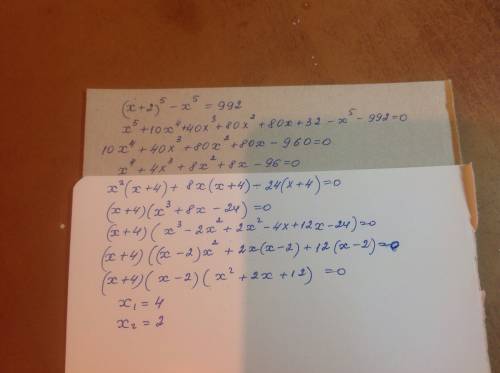 (x+2)⁵ - x⁵ = 992
x⁵ + 10x⁴ + 40x³ + 80x² + 80x + 32 - x⁵ - 992 = 0
10x⁴ + 40x³ + 80x² + 80x - 960 = 0
x⁴ + 4x³ + 8x² + 8x - 96 = 0
x³(x+4) + 8x(x+4) - 24(x+4) = 0
(x+4)(x³ + 8x - 24) = 0
(x+4)(x³ - 2x² + 2x² - 4x + 12x - 24) = 0
(x+4)((x-2)x² + 2x(x-2) + 12(x-2) = 0
(x+4)(x-2)(x² + 2x + 12) = 0
x₁ = 4
x₂ = 2